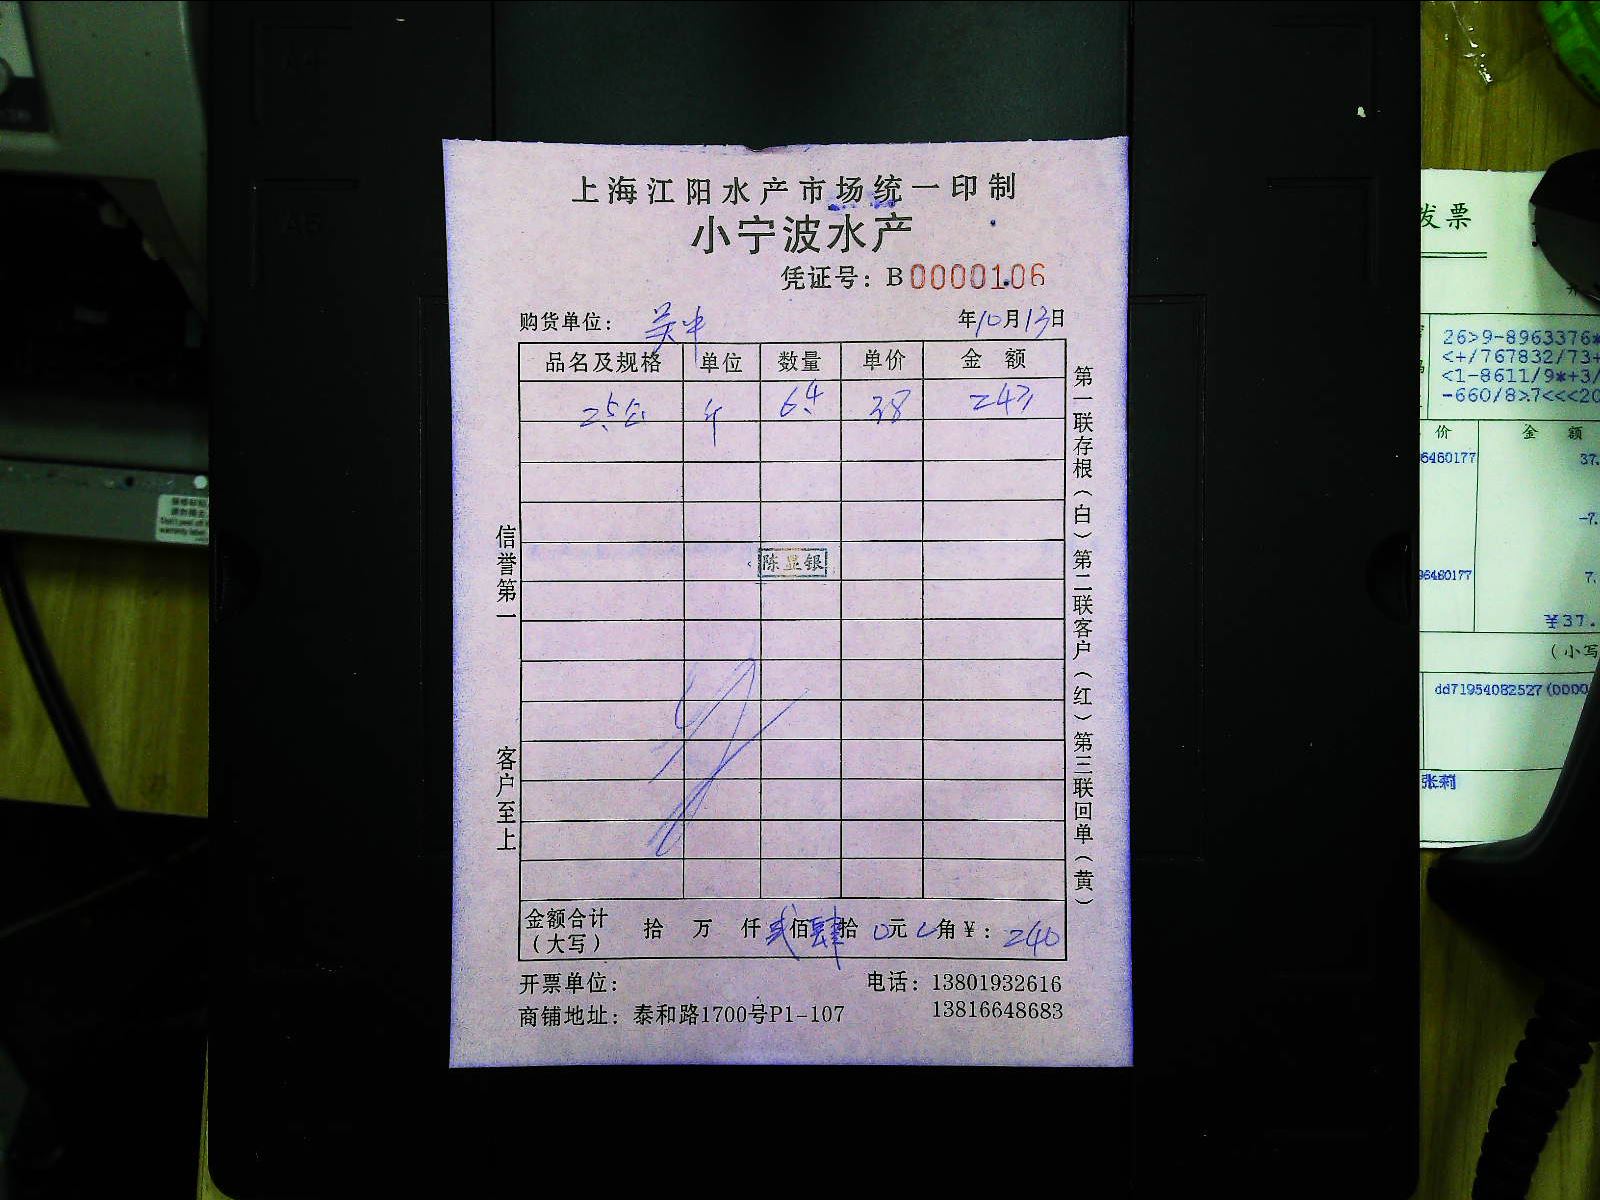 上海江阳水产市场统一印制
小宁波水产
凭证号：B0000106
购货单位：吴中
年10月13日
品名及规格 单位 数量 单价 金额
斤 6.4 38 243
陈显银
信誉第一
客户至上
第一联存根（白）第二联客户（红）第三联回单（黄）
金额合计（大写） 拾 万 仟 贰佰 肆拾 0元 角 ¥：240
开票单位：
电话：13801932616
13816648683
商铺地址：泰和路1700号P1-107
发票
26>9-8963376*
<+/767832/73+
<1-8611/9*+3/
-660/8>7<<<20
价 金 额
5460177 37.
-7.
96480177 7.
¥37.
（小写
dd71954082527(0000
张莉